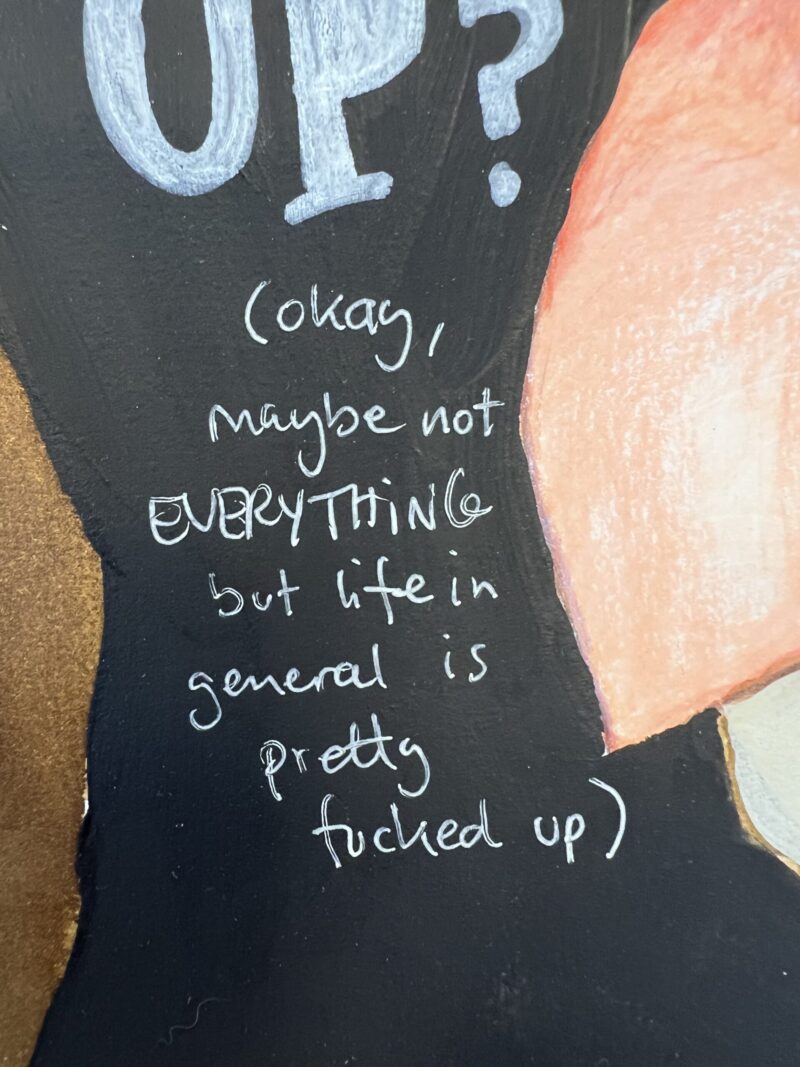 UP?
(okay,
maybe not
EVERYTHiNG
but life in
general is
pretty
fucked up)